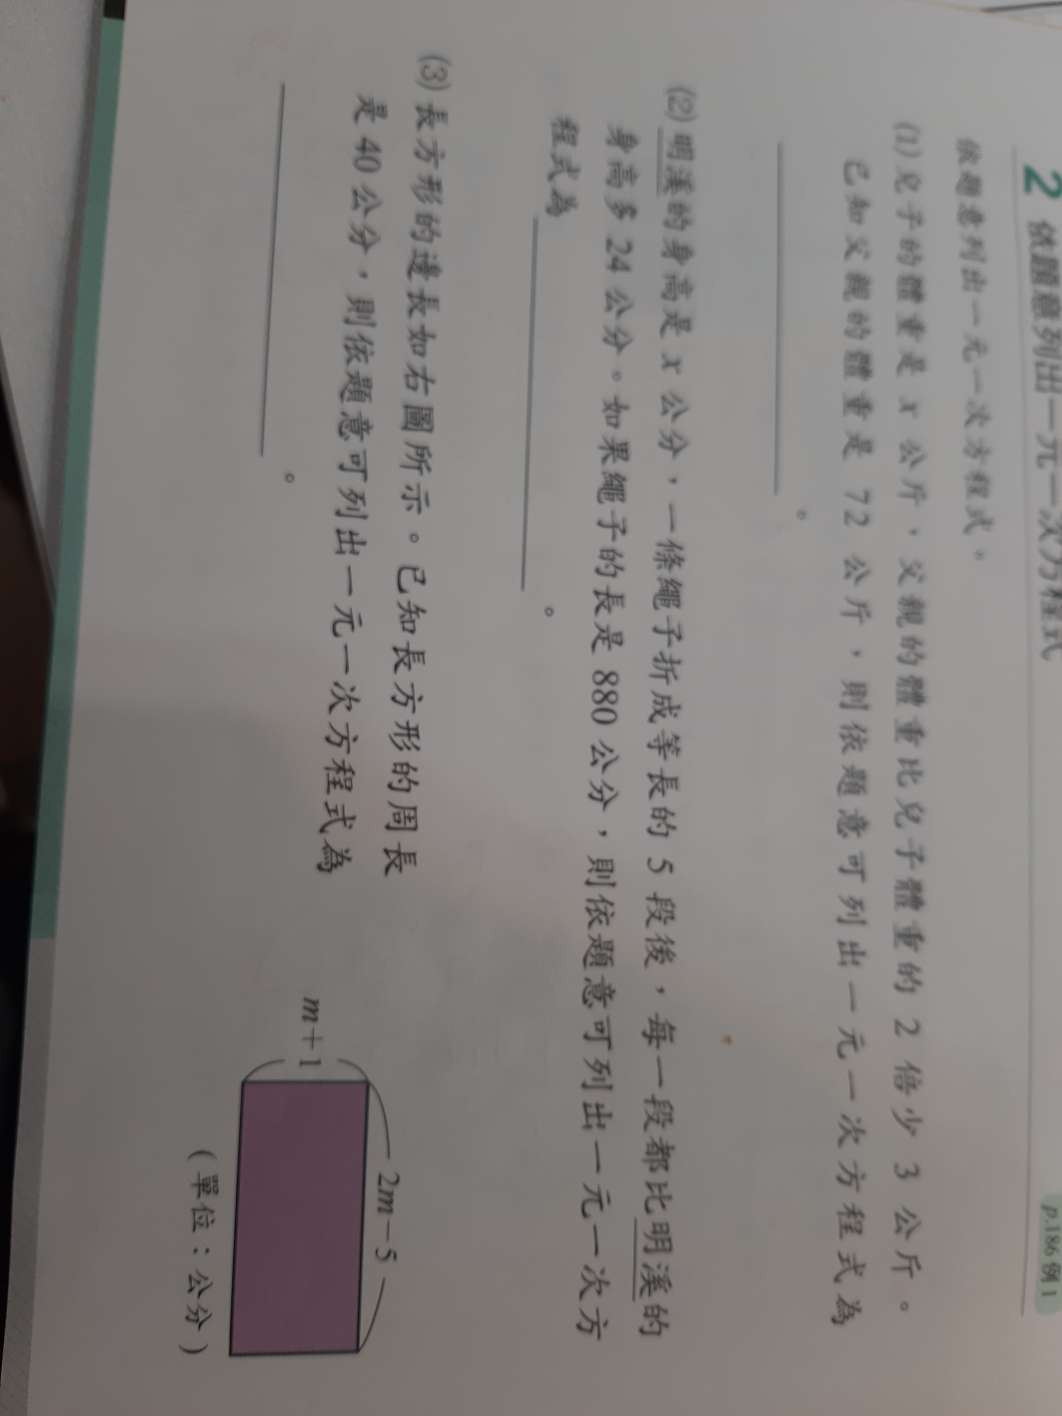 2 依題意列出一元一次方程式
p.186 例 1
依題意列出一元一次方程式。
(1) 兒子的體重是 x 公斤,父親的體重比兒子體重的 2 倍少 3 公斤。
已知父親的體重是 72 公斤,則依題意可列出一元一次方程式為
。
(2) 明溪的身高是 x 公分,一條繩子折成等長的 5 段後,每一段都比明溪的
身高多 24 公分。如果繩子的長是 880 公分,則依題意可列出一元一次方
程式為 。
(3) 長方形的邊長如右圖所示。已知長方形的周長
是 40 公分,則依題意可列出一元一次方程式為
。
2m-5
m+1
(單位:公分)